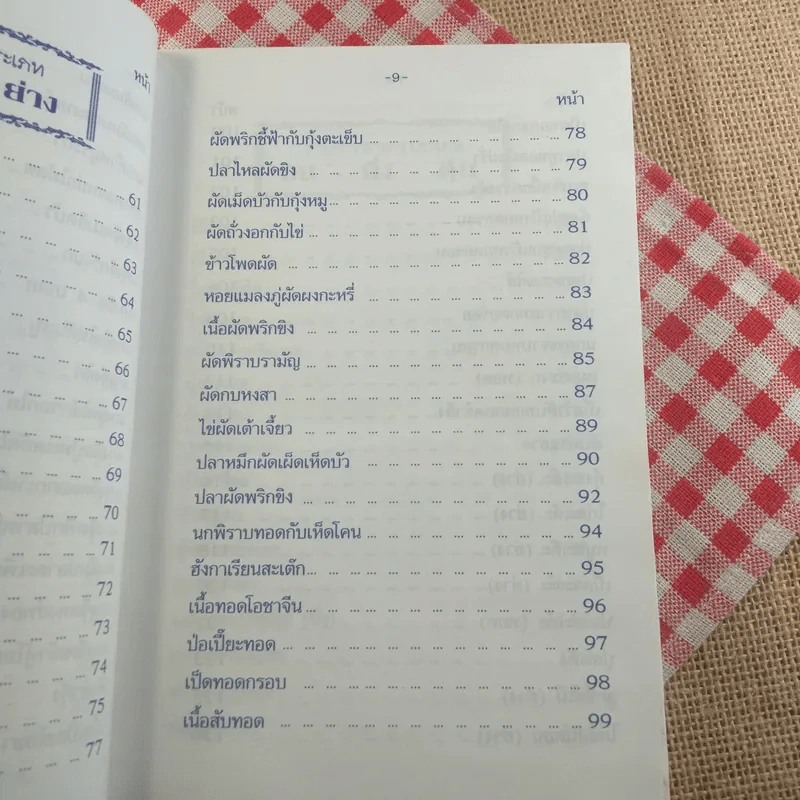 ระเภท
ย่าง
หน้า
... 61
... 62
... 63
... 64
... 65
... 66
... 67
... 68
... 69
... 70
... 71
... 72
... 73
... 74
... 75
... 77
-9-
หน้า
ผัดพริกชี้ฟ้ากับกุ้งตะเข็บ ... 78
ปลาไหลผัดขิง ... 79
ผัดเม็ดบัวกับกุ้งหมู ... 80
ผัดถั่วงอกกับไข่ ... 81
ข้าวโพดผัด ... 82
หอยแมลงภู่ผัดผงกะหรี่ ... 83
เนื้อผัดพริกขิง ... 84
ผัดพิราบรามัญ ... 85
ผัดกบหงสา ... 87
ไข่ผัดเต้าเจี้ยว ... 89
ปลาหมึกผัดเผ็ดเห็ดบัว ... 90
ปลาผัดพริกขิง ... 92
นกพิราบทอดกับเห็ดโคน ... 94
ฮังกาเรียนสะเต๊ก ... 95
เนื้อทอดโอชาจีน ... 96
ป่อเปี๊ยะทอด ... 97
เป็ดทอดกรอบ ... 98
เนื้อสับทอด ... 99